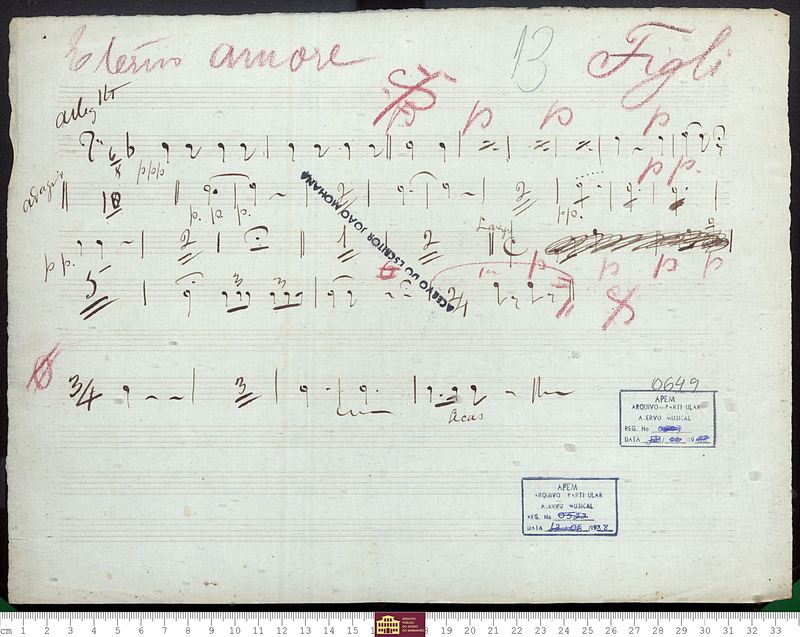 Eterno amore 13 Figli
alleg tt
p p p p
6/8 ppp
p p.
adagio
p. p. p. pp.
Largo
pp.
p p p p
5
3 3 3
ACERVO DO ESCRITOR JOÃO MOHANA
3/4 3
0649
APEM
ARQUIVO PARTICULAR
ACERVO MUSICAL
REG. No
DATA
APEM
ARQUIVO PARTICULAR
ACERVO MUSICAL
REG. No 0522
DATA 12/06/1988
cm 1 2 3 4 5 6 7 8 9 10 11 12 13 14 15 1 8 19 20 21 22 23 24 25 26 27 28 29 30 31 32 33
ARQUIVO
PÚBLICO
DO ESTADO
DO MARANHÃO